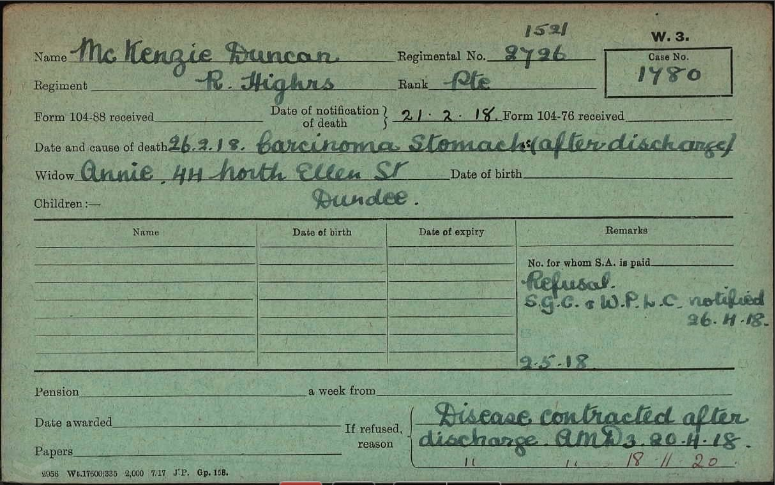 1521
W. 3.
Name McKenzie Duncan Regimental No. 2726 Case No.
1780
Regiment R. Highrs Rank Pte
Form 104-88 received Date of notification of death } 21·2·18. Form 104-76 received
Date and cause of death 26.2.18. Carcinoma Stomach (after discharge)
Widow Annie, 44 North Ellen St Date of birth
Children:— Dundee.
Name Date of birth Date of expiry Remarks
No. for whom S.A. is paid
Refusal.
S.G.C. & W.P.L.C. notified
26.4.18.
2.5.18.
Pension a week from
Date awarded
Papers
If refused, reason
Disease contracted after
discharge. AMD3. 20.4.18.
" " 18 11 20.
2956 Wt.17600/335 2,000 7/17 J.P. Gp. 158.